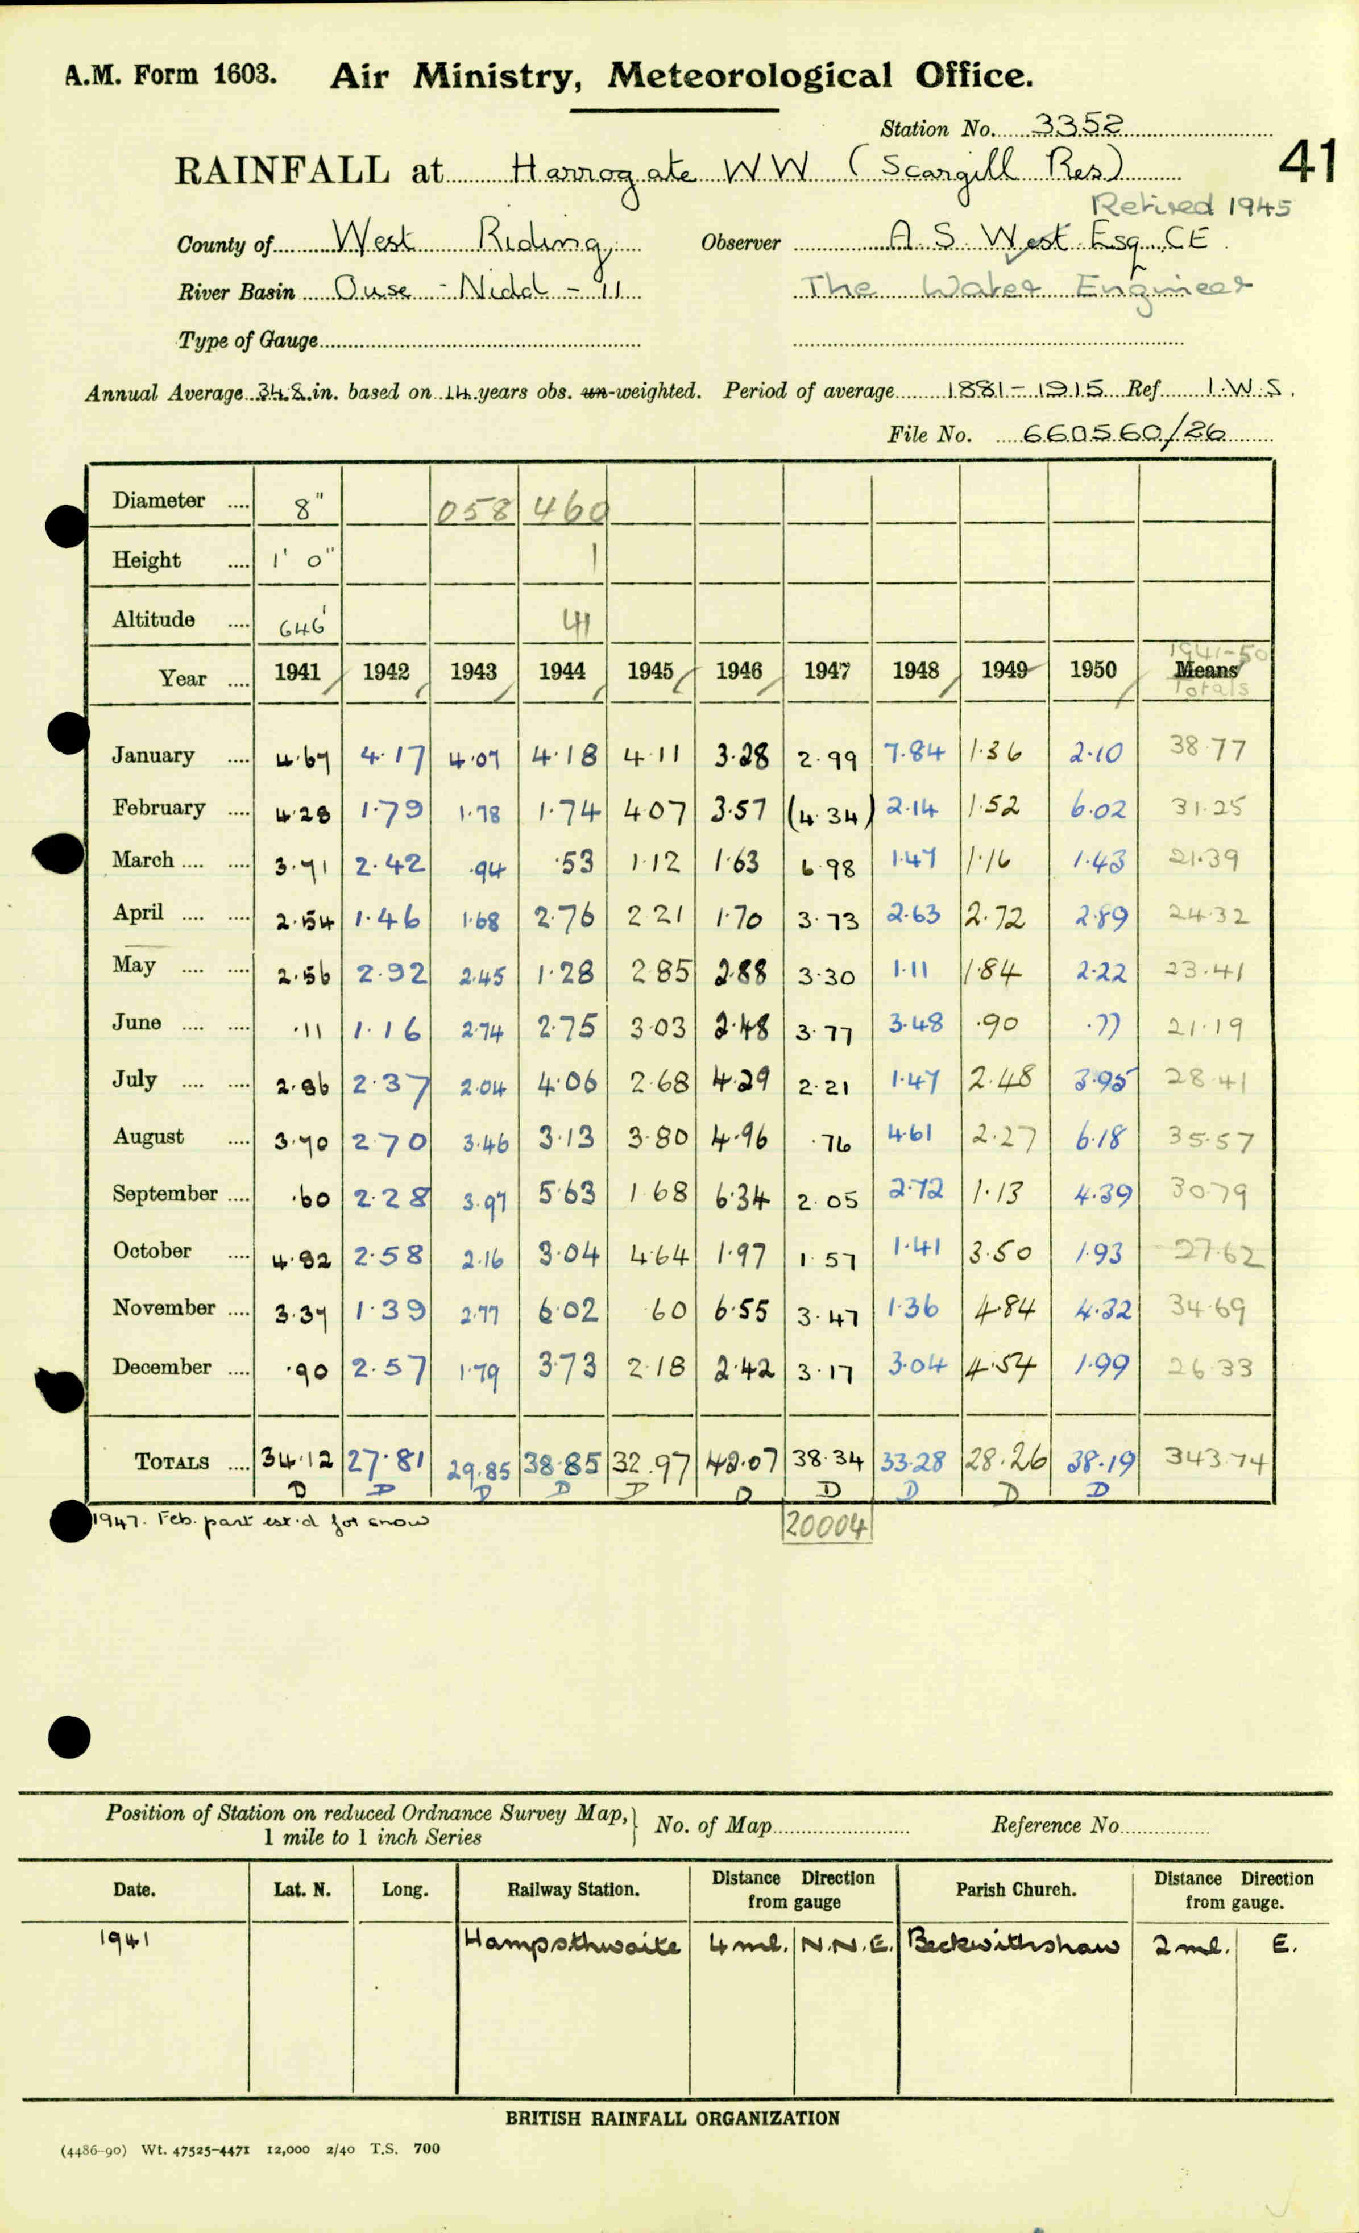 A.M. Form 1603. Air Ministry, Meteorological Office.
Station No. 3352
41
RAINFALL at Harrogate WW (Scargill Res)
Retired 1945
County of West Riding Observer A. S. West Esq. CE.
River Basin Ouse - Nidd - 11 The Water Engineer
Type of Gauge
Annual Average 34.8 in. based on 14 years obs. un-weighted. Period of average 1881-1915 Ref I.W.S.
File No. 660560/26
Diameter .... 8" 058 460
Height .... 1' 0" 1
Altitude .... 646' 41
1941-50
Year .... 1941 1942 1943 1944 1945 1946 1947 1948 1949 1950 Means
Totals
January .... 4.67 4.17 4.07 4.18 4.11 3.28 2.99 7.84 1.36 2.10 38.77
February .... 4.28 1.79 1.78 1.74 4.07 3.57 (4.34) 2.14 1.52 6.02 31.25
March .... .... 3.71 2.42 .94 .53 1.12 1.63 6.98 1.47 1.16 1.43 21.39
April .... .... 2.54 1.46 1.68 2.76 2.21 1.70 3.73 2.63 2.72 2.89 24.32
May .... .... 2.56 2.92 2.45 1.28 2.85 2.88 3.30 1.11 1.84 2.22 23.41
June .... .... .11 1.16 2.74 2.75 3.03 2.48 3.77 3.48 .90 .77 21.19
July .... .... 2.86 2.37 2.04 4.06 2.68 4.29 2.21 1.47 2.48 3.95 28.41
August .... 3.70 2.70 3.46 3.13 3.80 4.96 .76 4.61 2.27 6.18 35.57
September .... .60 2.28 3.97 5.63 1.68 6.34 2.05 2.72 1.13 4.39 30.79
October .... 4.82 2.58 2.16 3.04 4.64 1.97 1.57 1.41 3.50 1.93 27.62
November .... 3.37 1.39 2.77 6.02 .60 6.55 3.47 1.36 4.84 4.32 34.69
December .... .90 2.57 1.79 3.73 2.18 2.42 3.17 3.04 4.54 1.99 26.33
TOTALS .... 34.12 27.81 29.85 38.85 32.97 42.07 38.34 33.28 28.26 38.19 343.74
D D D D D D D D D D
1947. Feb. part est'd for snow 20004
Position of Station on reduced Ordnance Survey Map,} No. of Map Reference No
1 mile to 1 inch Series
Date. Lat. N. Long. Railway Station. Distance Direction from gauge Parish Church. Distance Direction from gauge.
1941 Hampsthwaite 4 ml. N.N.E. Beckwithshaw 2 ml. E.
BRITISH RAINFALL ORGANIZATION
(4486-90) Wt. 47525-4471 12,000 2/40 T.S. 700